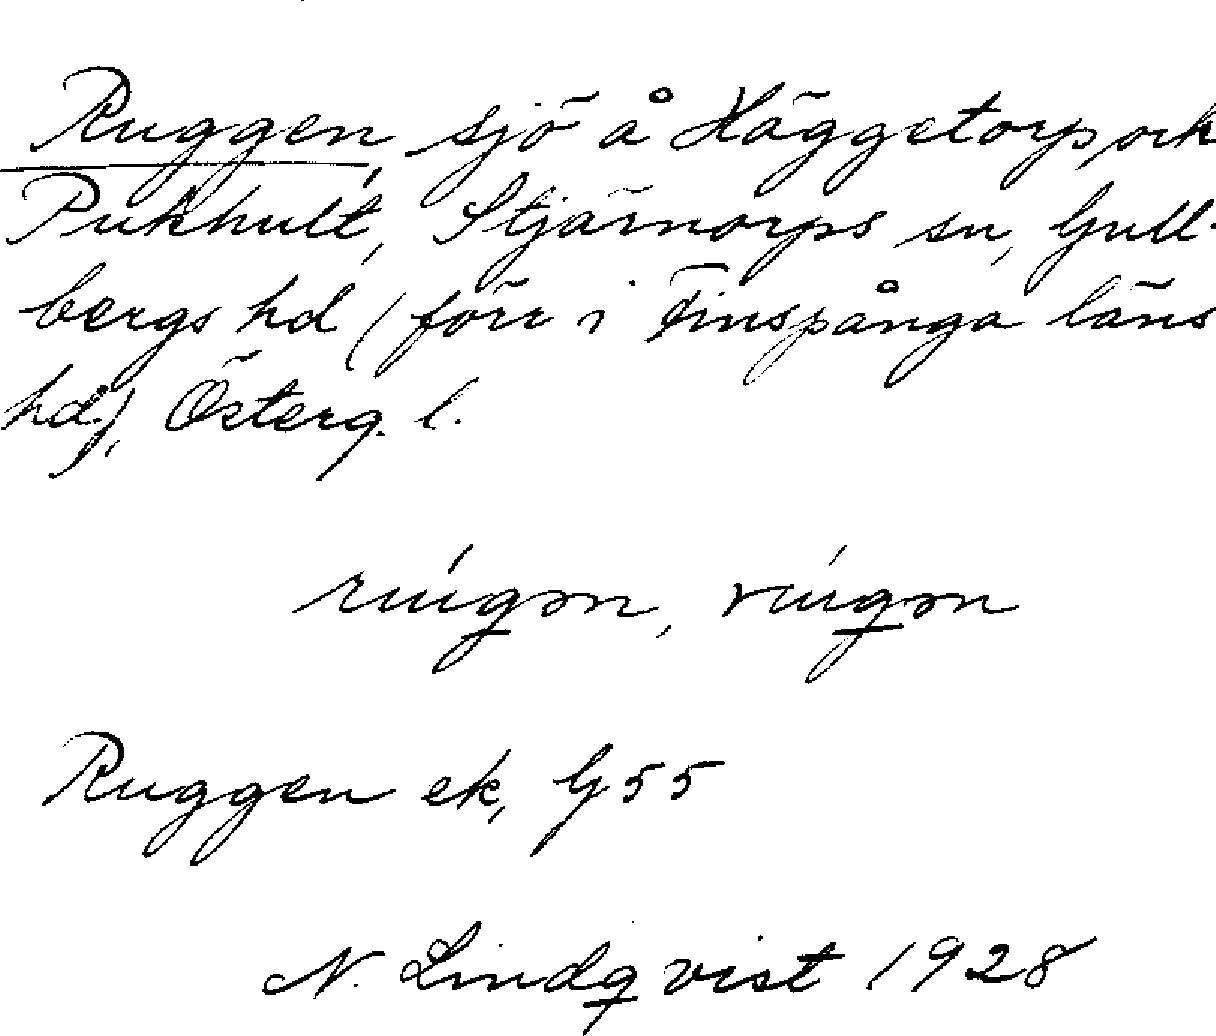 Ruggen, sjö å Häggetorp, och
Pukhult, Stjärnorps sn, Gull-
bergs hd (förr i Finspånga läns
hd), Österg. l.
Ruggen ek, G 55
N. Lindqvist 1928